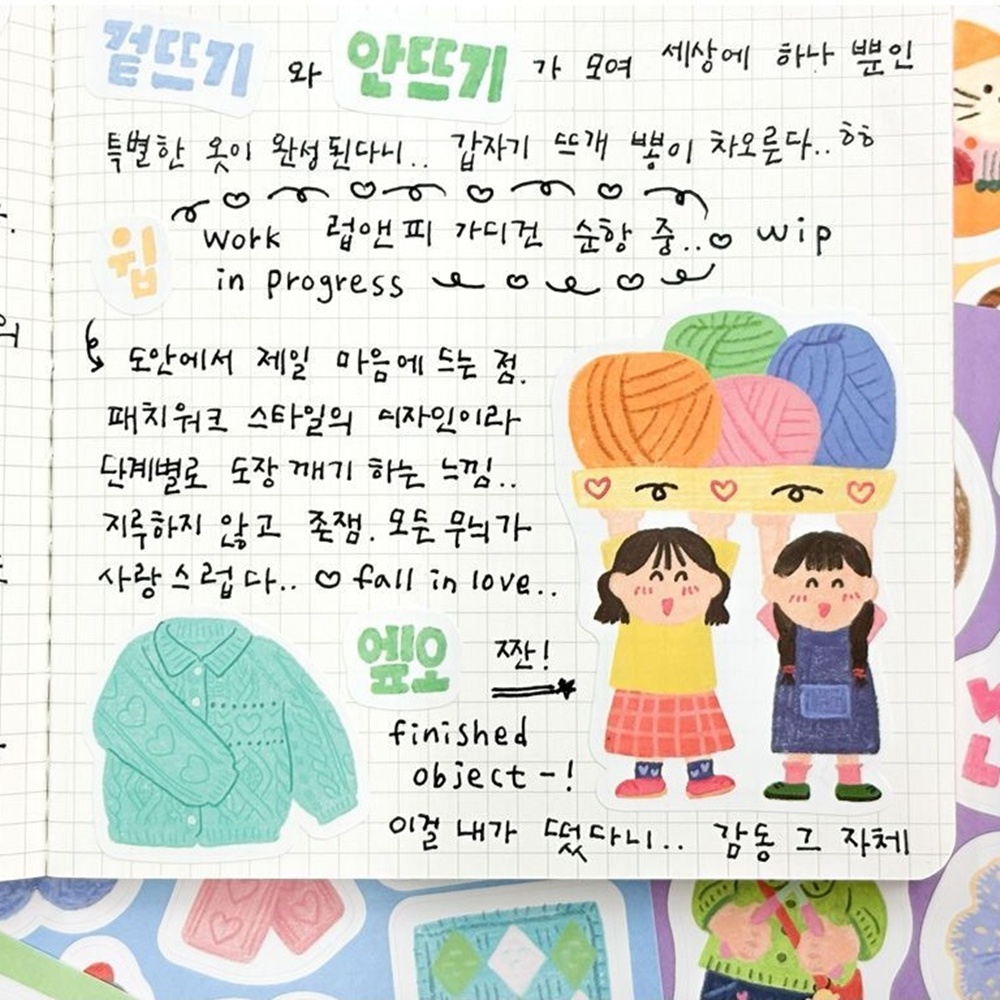 겉뜨기 와 안뜨기 가 모여 세상에 하나 뿐인
특별한 옷이 완성된다니.. 갑자기 뜨개 뽕이 차오른다..ㅎㅎ
윕 work 럽앤피 가디건 순항 중..♡ wip
in progress
도안에서 제일 마음에 드는 점.
패치워크 스타일의 디자인이라
단계별로 도장 깨기 하는 느낌..
지루하지 않고 존잼. 모든 무늬가
사랑스럽다.. ♡ fall in love..
엪오 짠!
finished
object-!
이걸 내가 떴다니.. 감동 그 자체